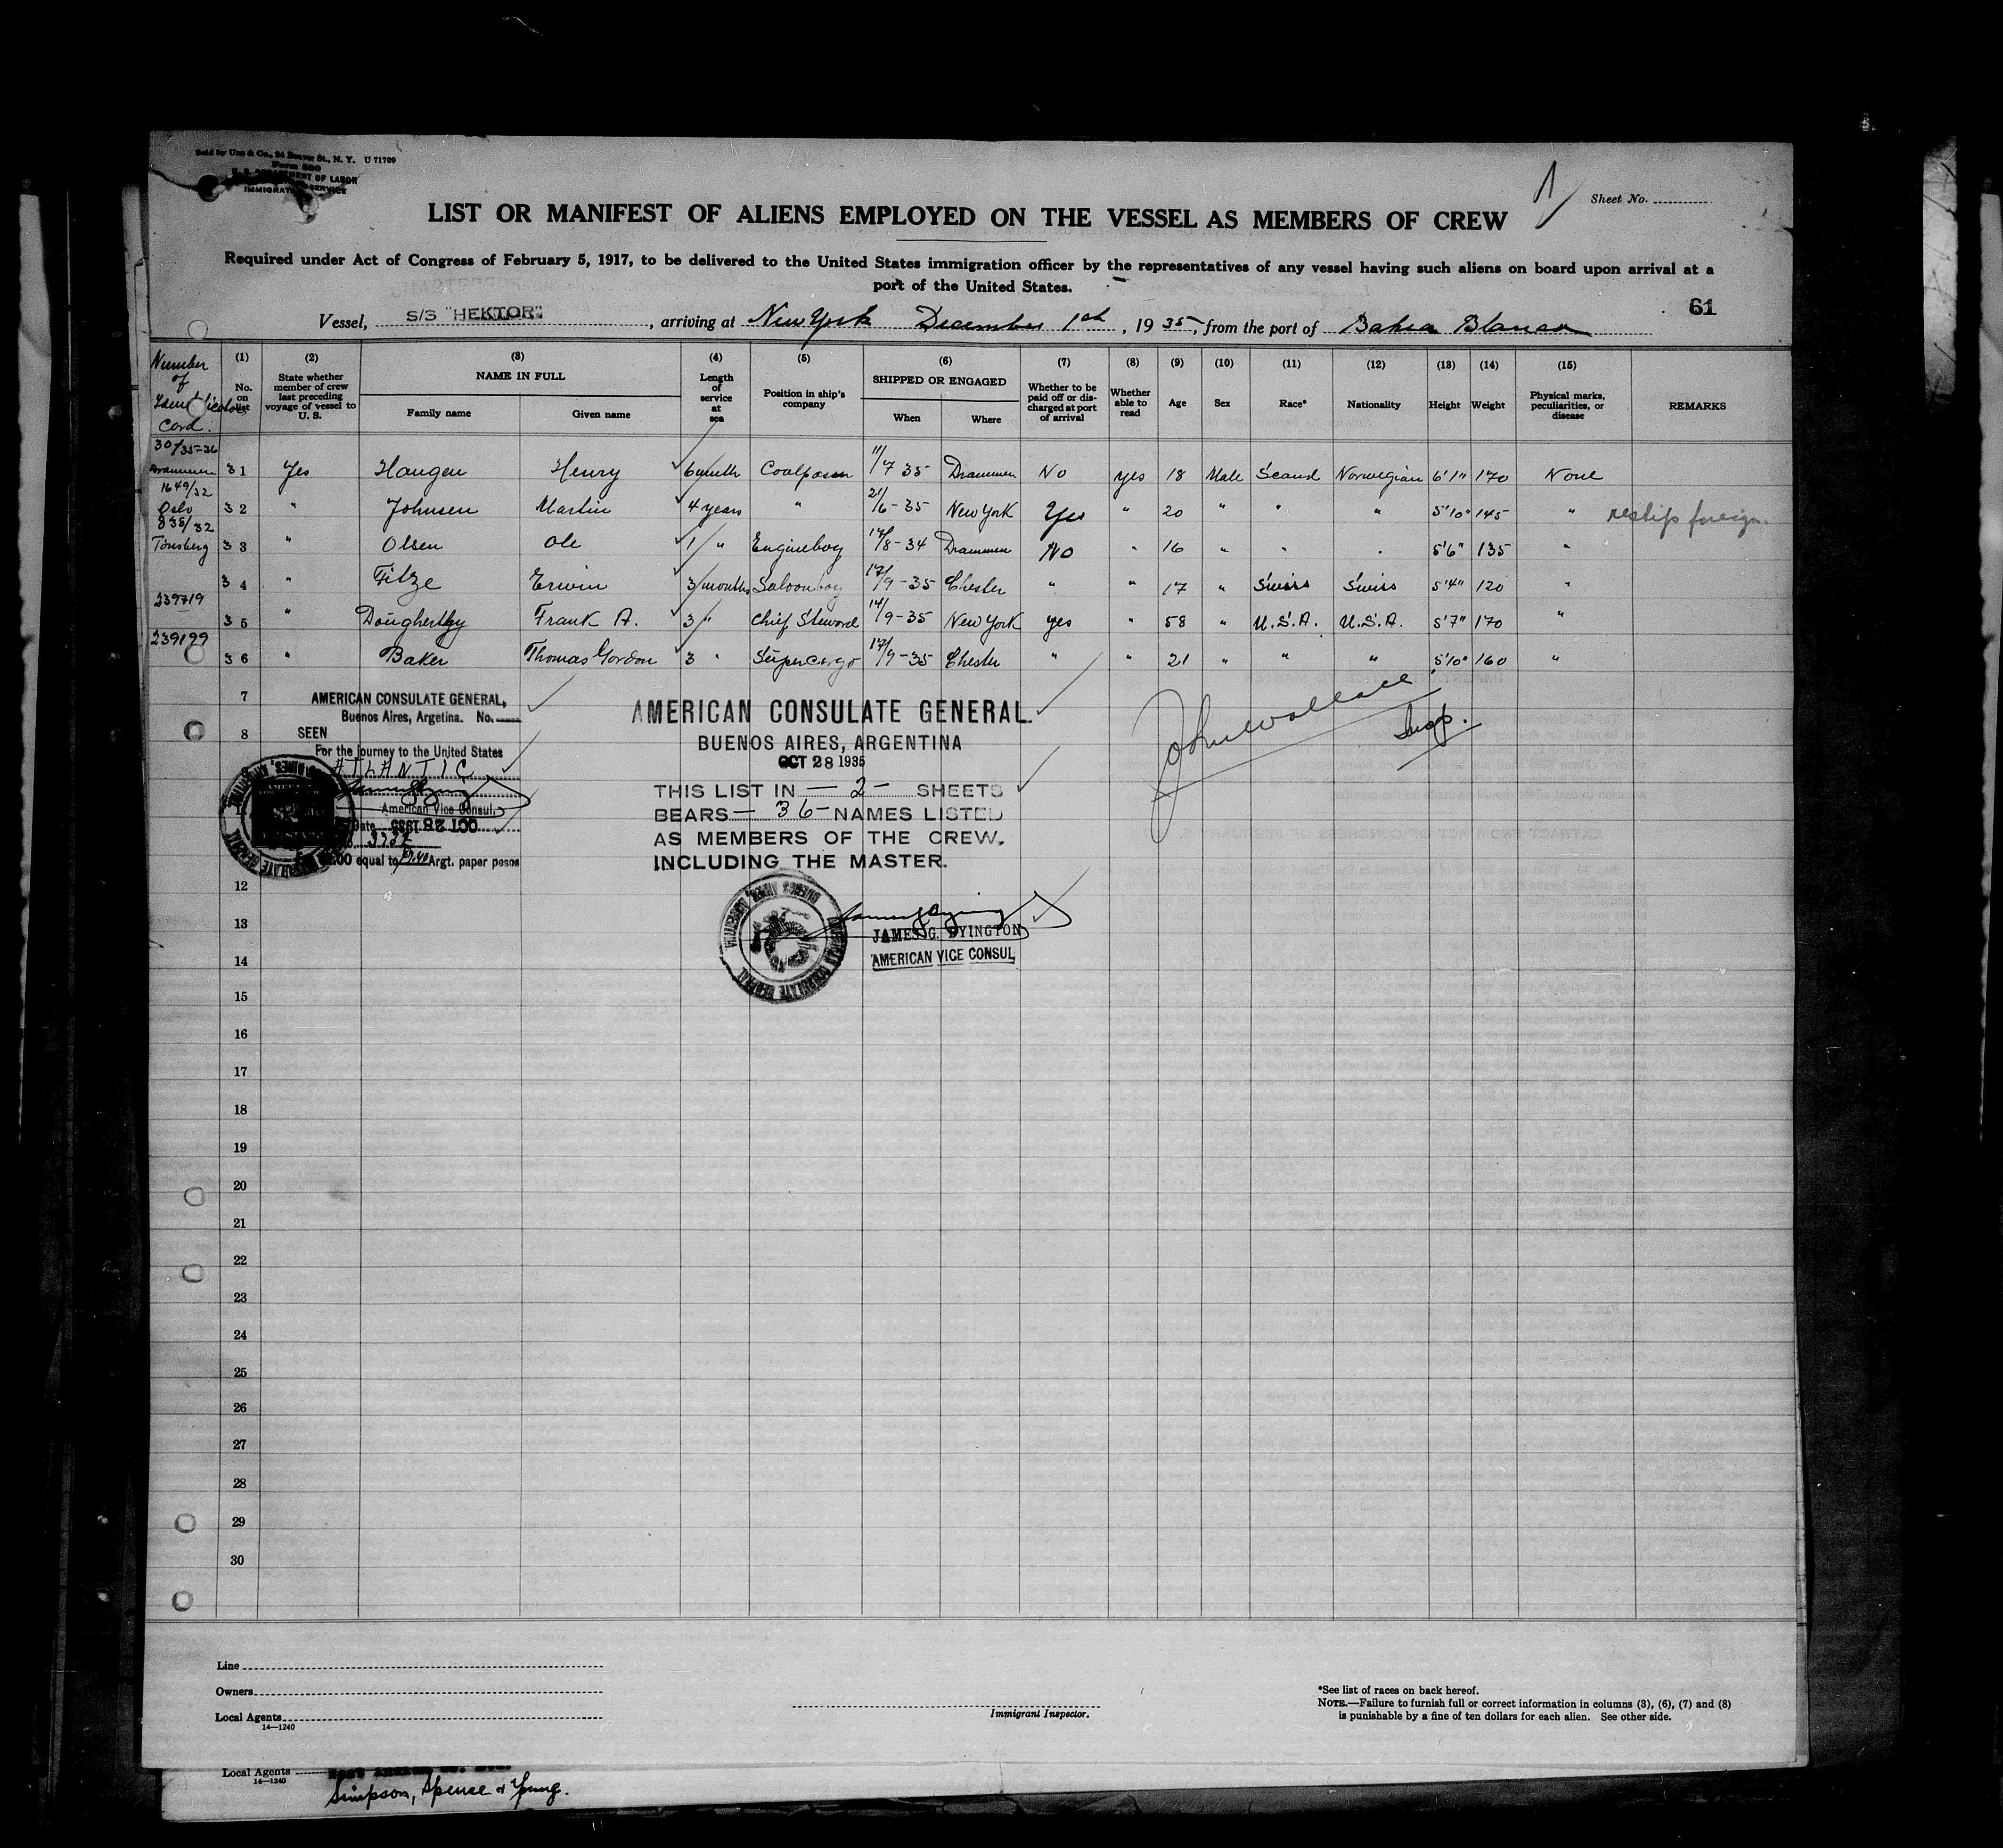 Sold by Unz & Co., 24 Beaver St., N. Y. U 71709
Form 680
U. S. DEPARTMENT OF LABOR
IMMIGRATION SERVICE
Sheet No.
LIST OR MANIFEST OF ALIENS EMPLOYED ON THE VESSEL AS MEMBERS OF CREW
Required under Act of Congress of February 5, 1917, to be delivered to the United States immigration officer by the representatives of any vessel having such aliens on board upon arrival at a
port of the United States.
61
Vessel, S/S "HEKTOR", arriving at New York December 1st, 1935, from the port of Bahia Blanca
Number of card.
(1) No. on list
(2) State whether member of crew last preceding voyage of vessel to U. S.
(3) NAME IN FULL Family name Given name
(4) Length of service at sea
(5) Position in ship's company
(6) SHIPPED OR ENGAGED When Where
(7) Whether to be paid off or discharged at port of arrival
(8) Whether able to read
(9) Age
(10) Sex
(11) Race*
(12) Nationality
(13) Height
(14) Weight
(15) Physical marks, peculiarities, or disease
REMARKS
30/35-36
Drammen 31 Yes Haugen Henry 6 month Coalpasser 11/7 35 Drammen No yes 18 Male Scand Norwegian 6'1" 170 None
1649/32
Oslo 32 " Johnsen Martin 4 years " 21/6-35 New York Yes " 20 " " " 5'10" 145 " reship foreign.
835/32
Tönsberg 33 " Olsen Ole 1 " Engineboy 14/8-34 Drammen No " 16 " " " 5'6" 135 "
34 " Fitze Erwin 3 months Saloonboy 17/9-35 Chester " " 17 " Swiss Swiss 5'4" 120 "
239719
35 " Dougherthy Frank A. 3 " Chief Steward 14/9-35 New York yes " 58 " U.S.A. U.S.A. 5'7" 170 "
239199
36 " Baker Thomas Gordon 3 " Supercargo 17/9-35 Chester " " 21 " " " 5'10" 160 "
7
AMERICAN CONSULATE GENERAL,
Buenos Aires, Argetina. No.
8 SEEN
For the journey to the United States
ATLANTIC
American Vice Consul.
Date OCT 28 1935
3732
equal to Argt. paper pesos
AMERICAN CONSULATE GENERAL
BUENOS AIRES, ARGENTINA
OCT 28 1935
THIS LIST IN — 2 — SHEETS
BEARS — 36 — NAMES LISTED
AS MEMBERS OF THE CREW,
INCLUDING THE MASTER.
John Wallace
Insp.
JAMES G. BYINGTON
AMERICAN VICE CONSUL
12
13
14
15
16
17
18
19
20
21
22
23
24
25
26
27
28
29
30
Line
Owners
Local Agents
14—1240
Immigrant Inspector.
*See list of races on back hereof.
NOTE.—Failure to furnish full or correct information in columns (3), (6), (7) and (8)
is punishable by a fine of ten dollars for each alien. See other side.
Local Agents
14—1240
Simpson, Spence & Young.